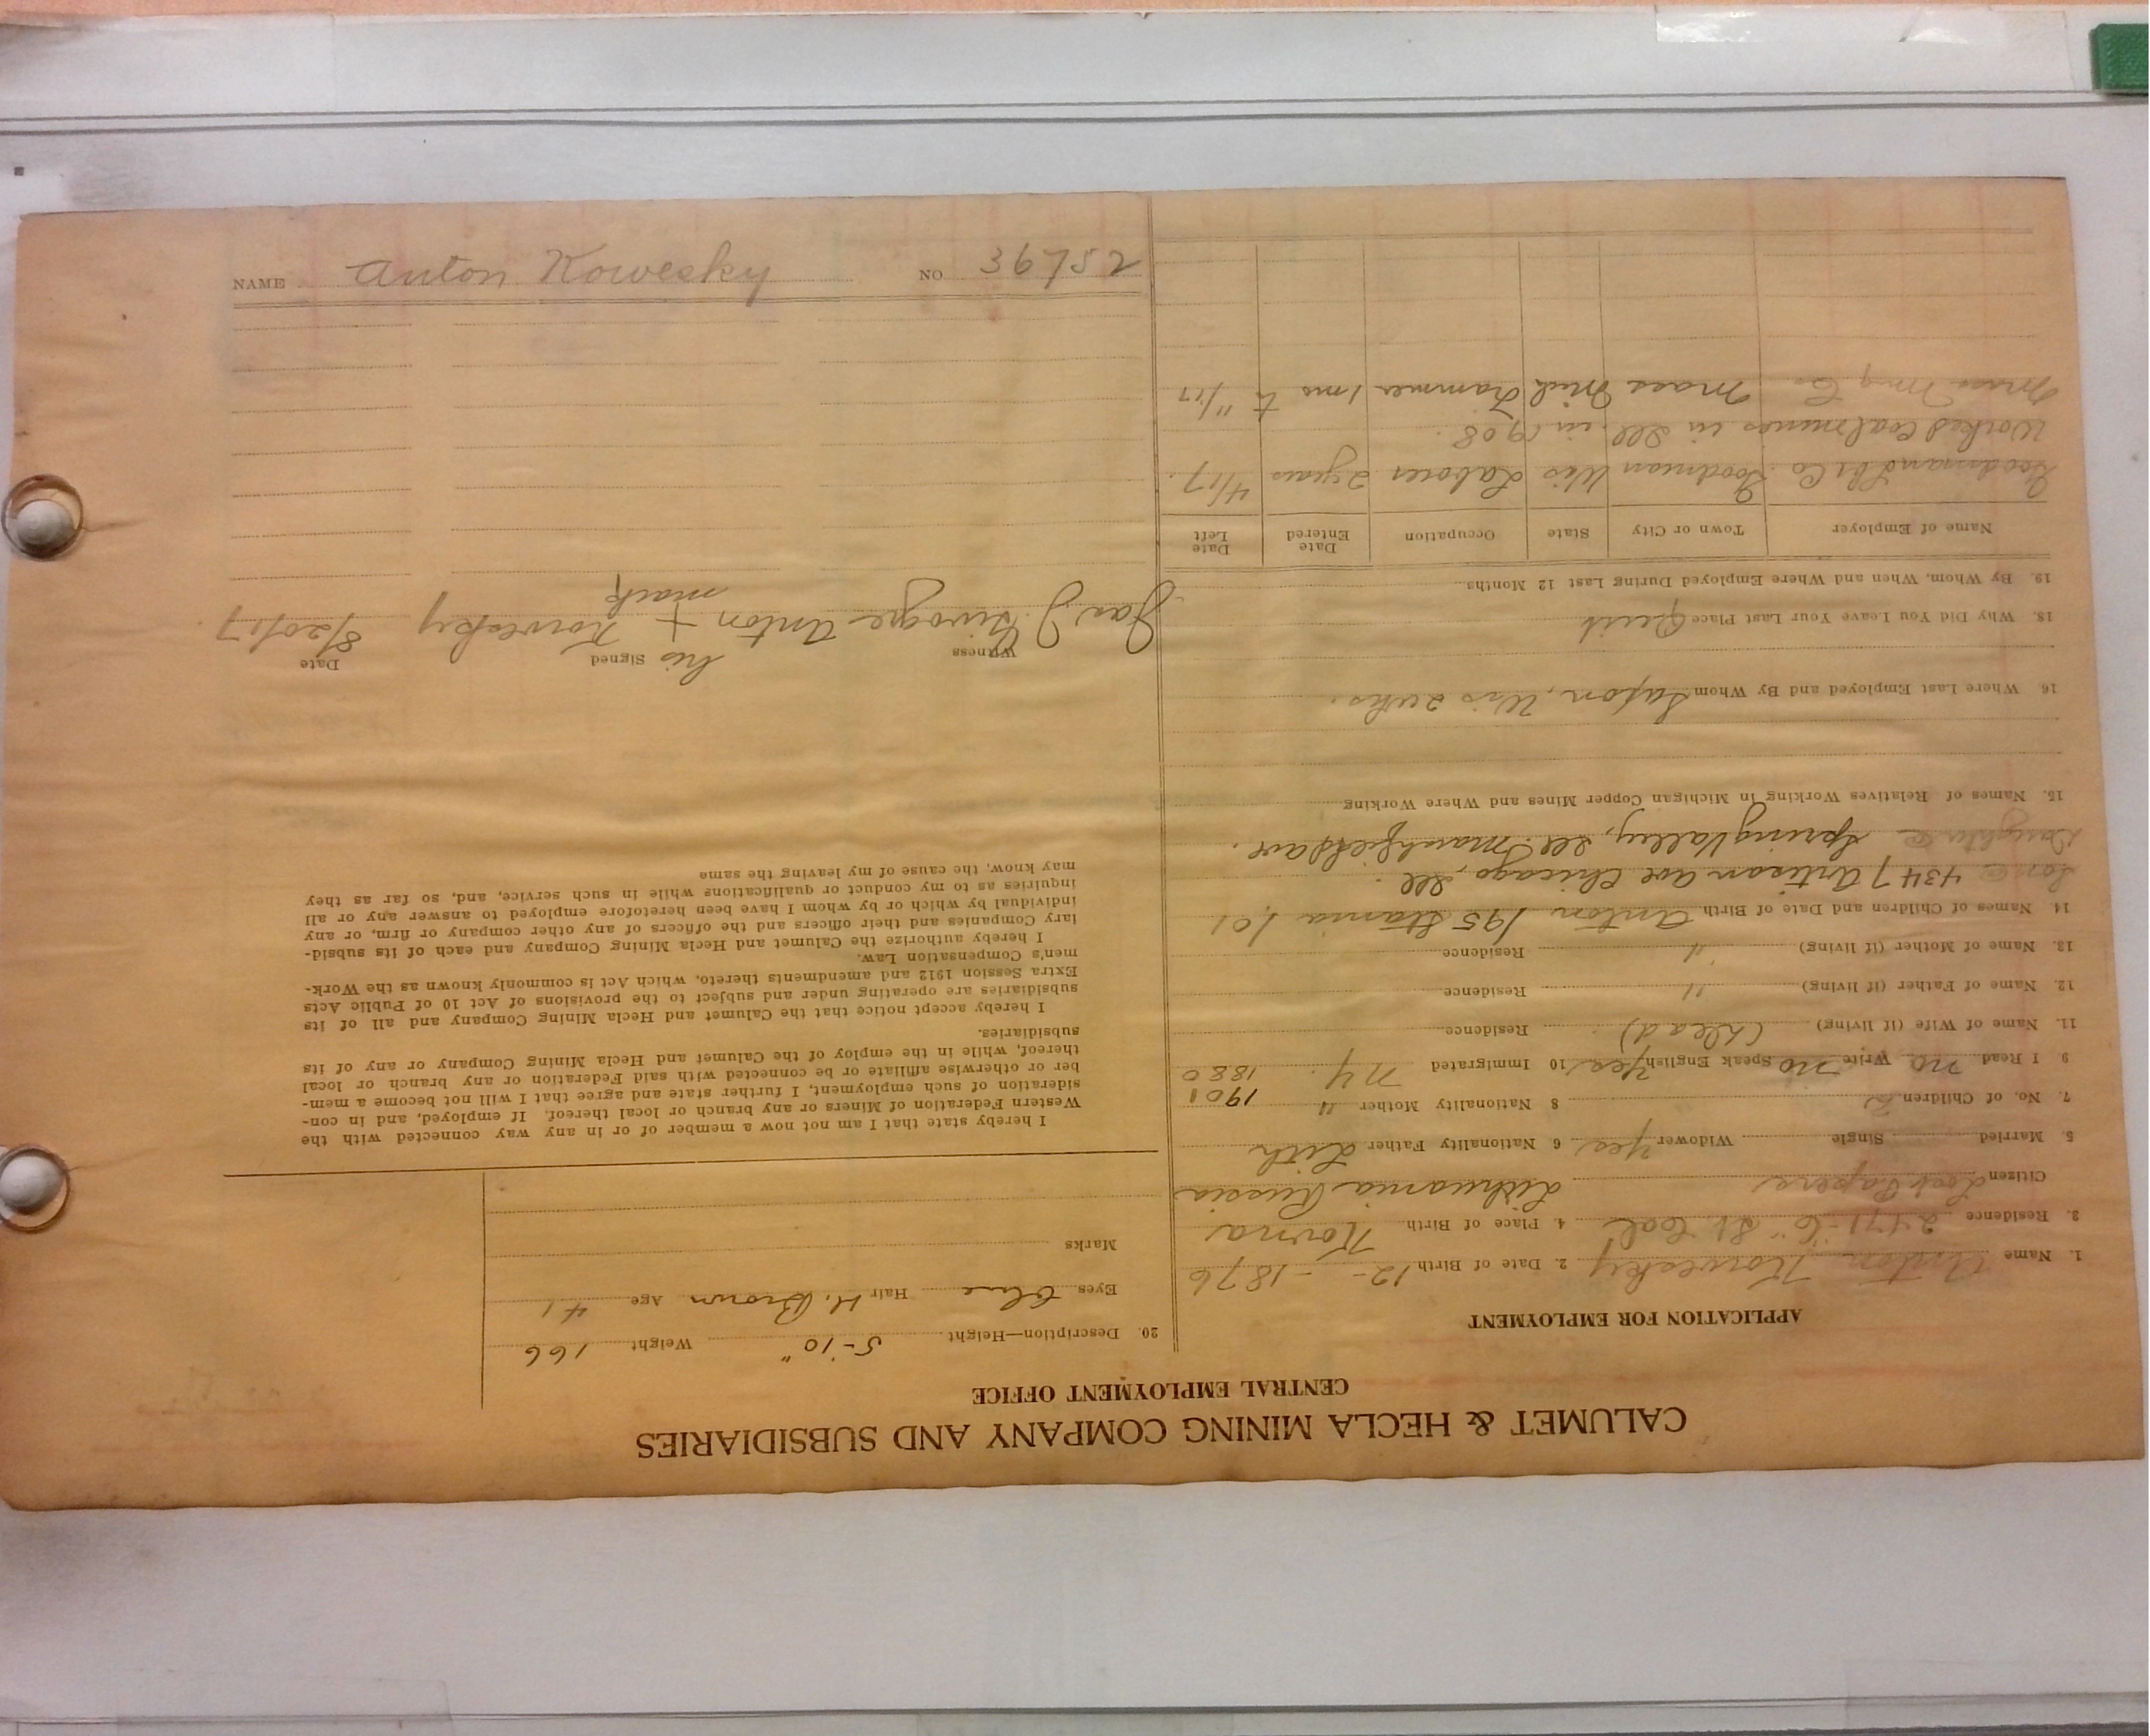 NAME Anton Kowesky NO 36752
CALUMET & HECLA MINING COMPANY AND SUBSIDIARIES
CENTRAL EMPLOYMENT OFFICE
APPLICATION FOR EMPLOYMENT
1. Name Anton Kowesky 2. Date of Birth 12 - - 1876
2. Residence 2471-"C" St. Cal 4. Place of Birth Kovna
Citizen Lost Papers Lithuania Russia
5. Married Single Widower Yes 6 Nationality Father Lith
7. No. of Children 2 8 Nationality Mother " 1901
9 I Read no Write no Speak English Yes 10 Immigrated NY. 1880
11. Name of Wife (if living) (Dead) Residence
12. Name of Father (if living) " Residence
13. Name of Mother (if living) " Residence
14. Names of Children and Date of Birth Anton 195
Son @ 4347 Artisan Ave Chicago, Ill.
Daughter @ Spring Valley, Ill. Marshfield Ave.
15. Names of Relatives Working in Michigan Copper Mines and Where Working
16. Where Last Employed and By Whom Wis 2 wks.
18. Why Did You Leave Your Last Place Quit
19. By Whom, When and Where Employed During Last 12 Months
Name of Employer Town or City State Occupation Date Entered Date Left
Goodman Co. Goodman Wis Laborer 2 years 4/17.
Worked Coal mines in Ill. in 1908.
Mass Mng Co Mass Mich Trammer 1 mo to "/17
20. Description—Height 5-10" Weight 166
Eyes Blue Hair H. Brown Age 41
Marks
I hereby state that I am not now a member of or in any way connected with the
Western Federation of Miners or any branch or local thereof. If employed, and in con-
sideration of such employment, I further state and agree that I will not become a mem-
ber or otherwise affiliate or be connected with said Federation or any branch or local
thereof, while in the employ of the Calumet and Hecla Mining Company or any of its
subsidiaries.
I hereby accept notice that the Calumet and Hecla Mining Company and all of its
subsidiaries are operating under and subject to the provisions of Act 10 of Public Acts
Extra Session 1912 and amendments thereto, which Act is commonly known as the Work-
men's Compensation Law.
I hereby authorize the Calumet and Hecla Mining Company and each of its subsid-
iary Companies and their officers and the officers of any other company or firm, or any
individual by which or by whom I have been heretofore employed to answer any or all
inquiries as to my conduct or qualifications while in such service, and, so far as they
may know, the cause of my leaving the same
Witness Signed Date
his
Jas J. Anton + Kowesky 8/20/17
mark